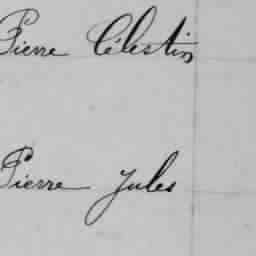 Pierre Célestin
Pierre Jules